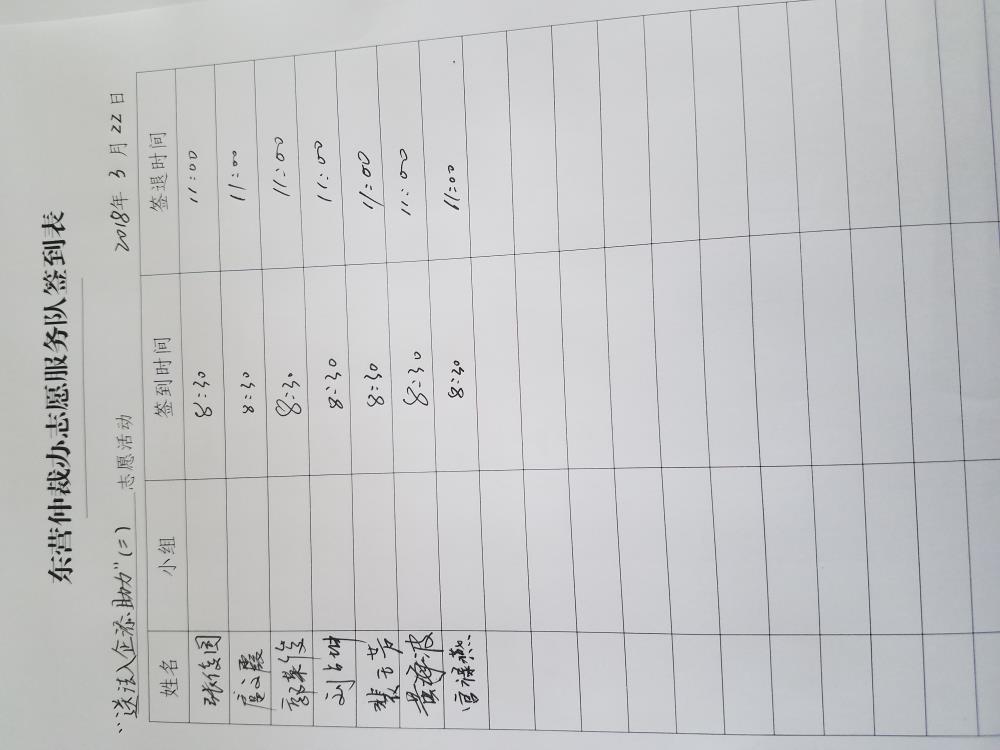 东营仲裁办志愿服务队签到表
“送法入企添助力”(二) 志愿活动 2018年 3 月 22 日
姓名 小组 签到时间 签退时间
张俊国 8:30 11:00
8:30 11:00
郭荣俊 8:30 11:00
刘占坤 8:30 11:00
8:30 11:00
黄海波 8:30 11:00
宫禄燕 8:30 11:00